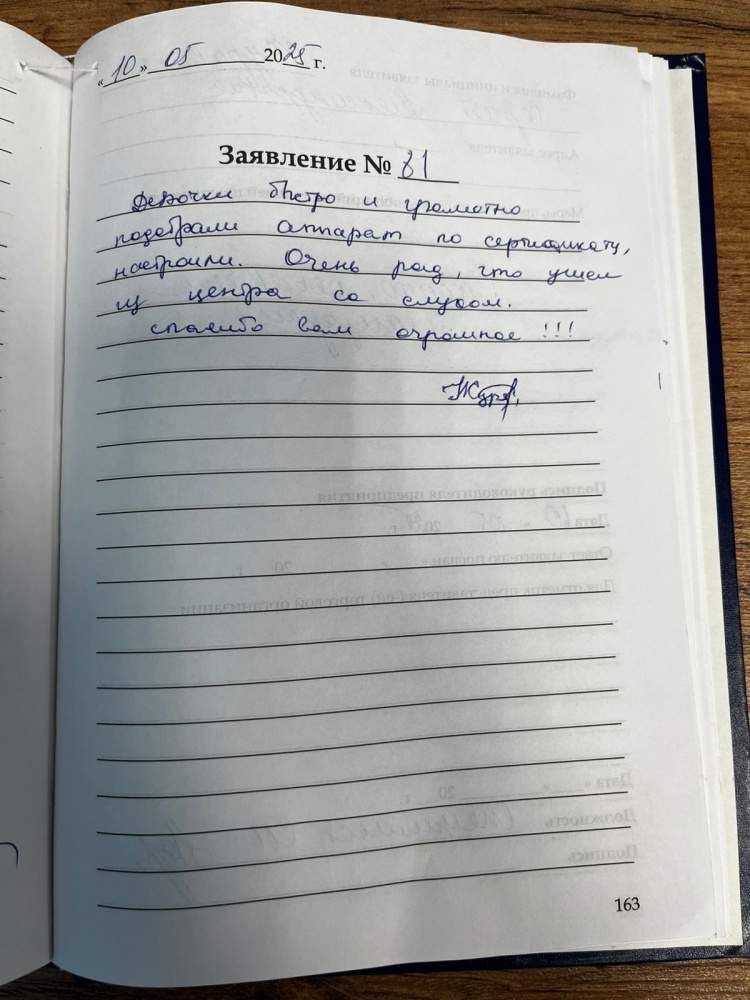 «10» 05 2025 г.
Заявление № 81
Девочки быстро и грамотно
подобрали аппарат по сертификату,
настроили. Очень рад, что ушел
из центра со слухом.
спасибо вам огромное!!!
163